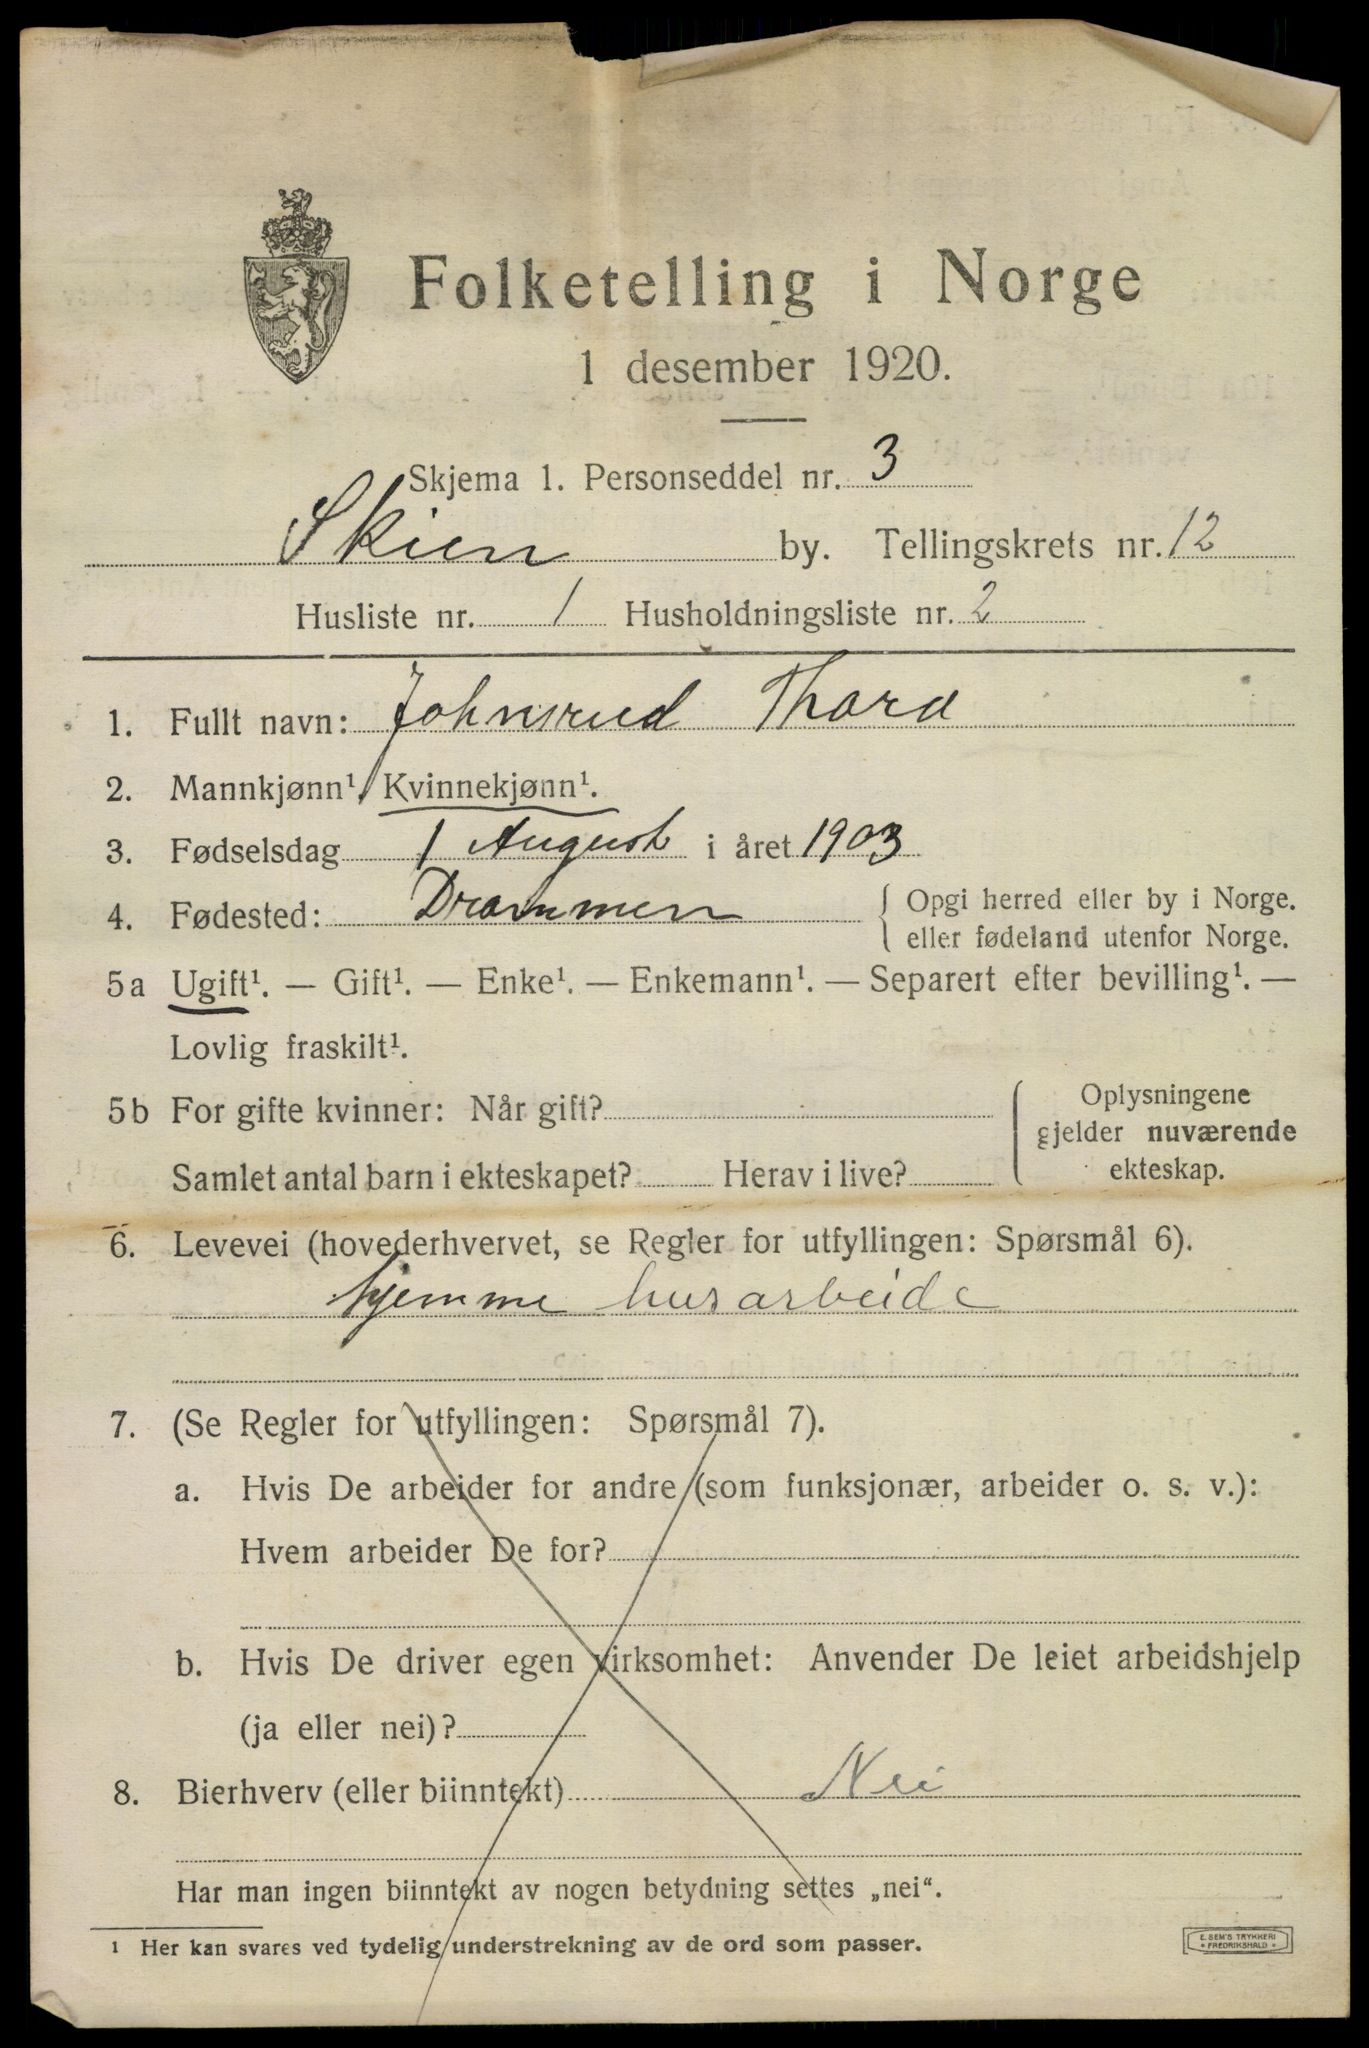 Folketelling i Norge
1 desember 1920.
Skjema 1. Personseddel nr. 3
Skien by. Tellingskrets nr. 12
Husliste nr. 1 Husholdningsliste nr. 2
1. Fullt navn: Johnsrud Thora
2. Mannkjønn¹. Kvinnekjønn¹.
3. Fødselsdag 1 August i året 1903
4. Fødested: Drammen { Opgi herred eller by i Norge.
eller fødeland utenfor Norge.
5a Ugift¹. — Gift¹. — Enke¹. — Enkemann¹. — Separert efter bevilling¹. —
Lovlig fraskilt¹.
5b For gifte kvinner: Når gift? { Oplysningene
gjelder nuværende
Samlet antal barn i ekteskapet? Herav i live? ekteskap.
6. Levevei (hovederhvervet, se Regler for utfyllingen: Spørsmål 6).
hjemme husarbeide
7. (Se Regler for utfyllingen: Spørsmål 7).
a. Hvis De arbeider for andre (som funksjonær, arbeider o. s. v.):
Hvem arbeider De for?
b. Hvis De driver egen virksomhet: Anvender De leiet arbeidshjelp
(ja eller nei)?
8. Bierhverv (eller biinntekt) Nei
Har man ingen biinntekt av nogen betydning settes „nei“.
1 Her kan svares ved tydelig understrekning av de ord som passer.
E. SEM'S TRYKKERI
• FREDRIKSHALD •